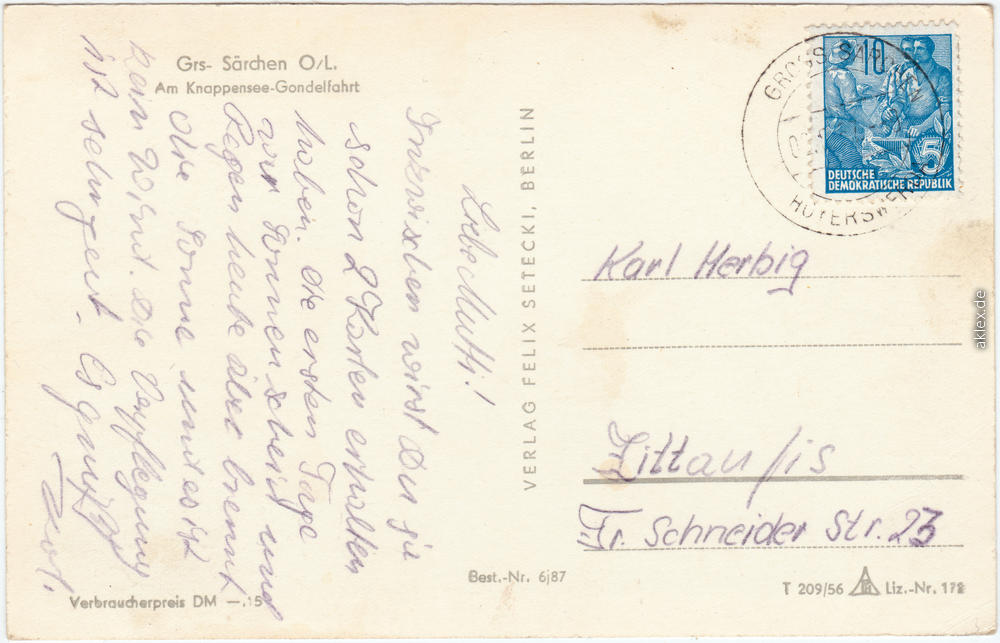 Grs- Särchen O/L.
Am Knappensee-Gondelfahrt
Liebe Mutti!
Inzwischen wirst Du ja
schon 2 Karten erhalten
haben. Die ersten Tage
war Sonnenschein und
Regen heute aber brennt
die Sonne und es ist
kein Wind. Die Verpflegung
ist sehr gut. Es grüßt
VERLAG FELIX SETECKI, BERLIN
Best.-Nr. 6j87
Verbraucherpreis DM —.15
GROSS SÄRCHEN
HOYERSWERDA
10
5
DEUTSCHE
DEMOKRATISCHE REPUBLIK
Karl Herbig
Zittau /is
Fr. Schneider Str. 23
T 209/56 Liz.-Nr. 178
aklex.de